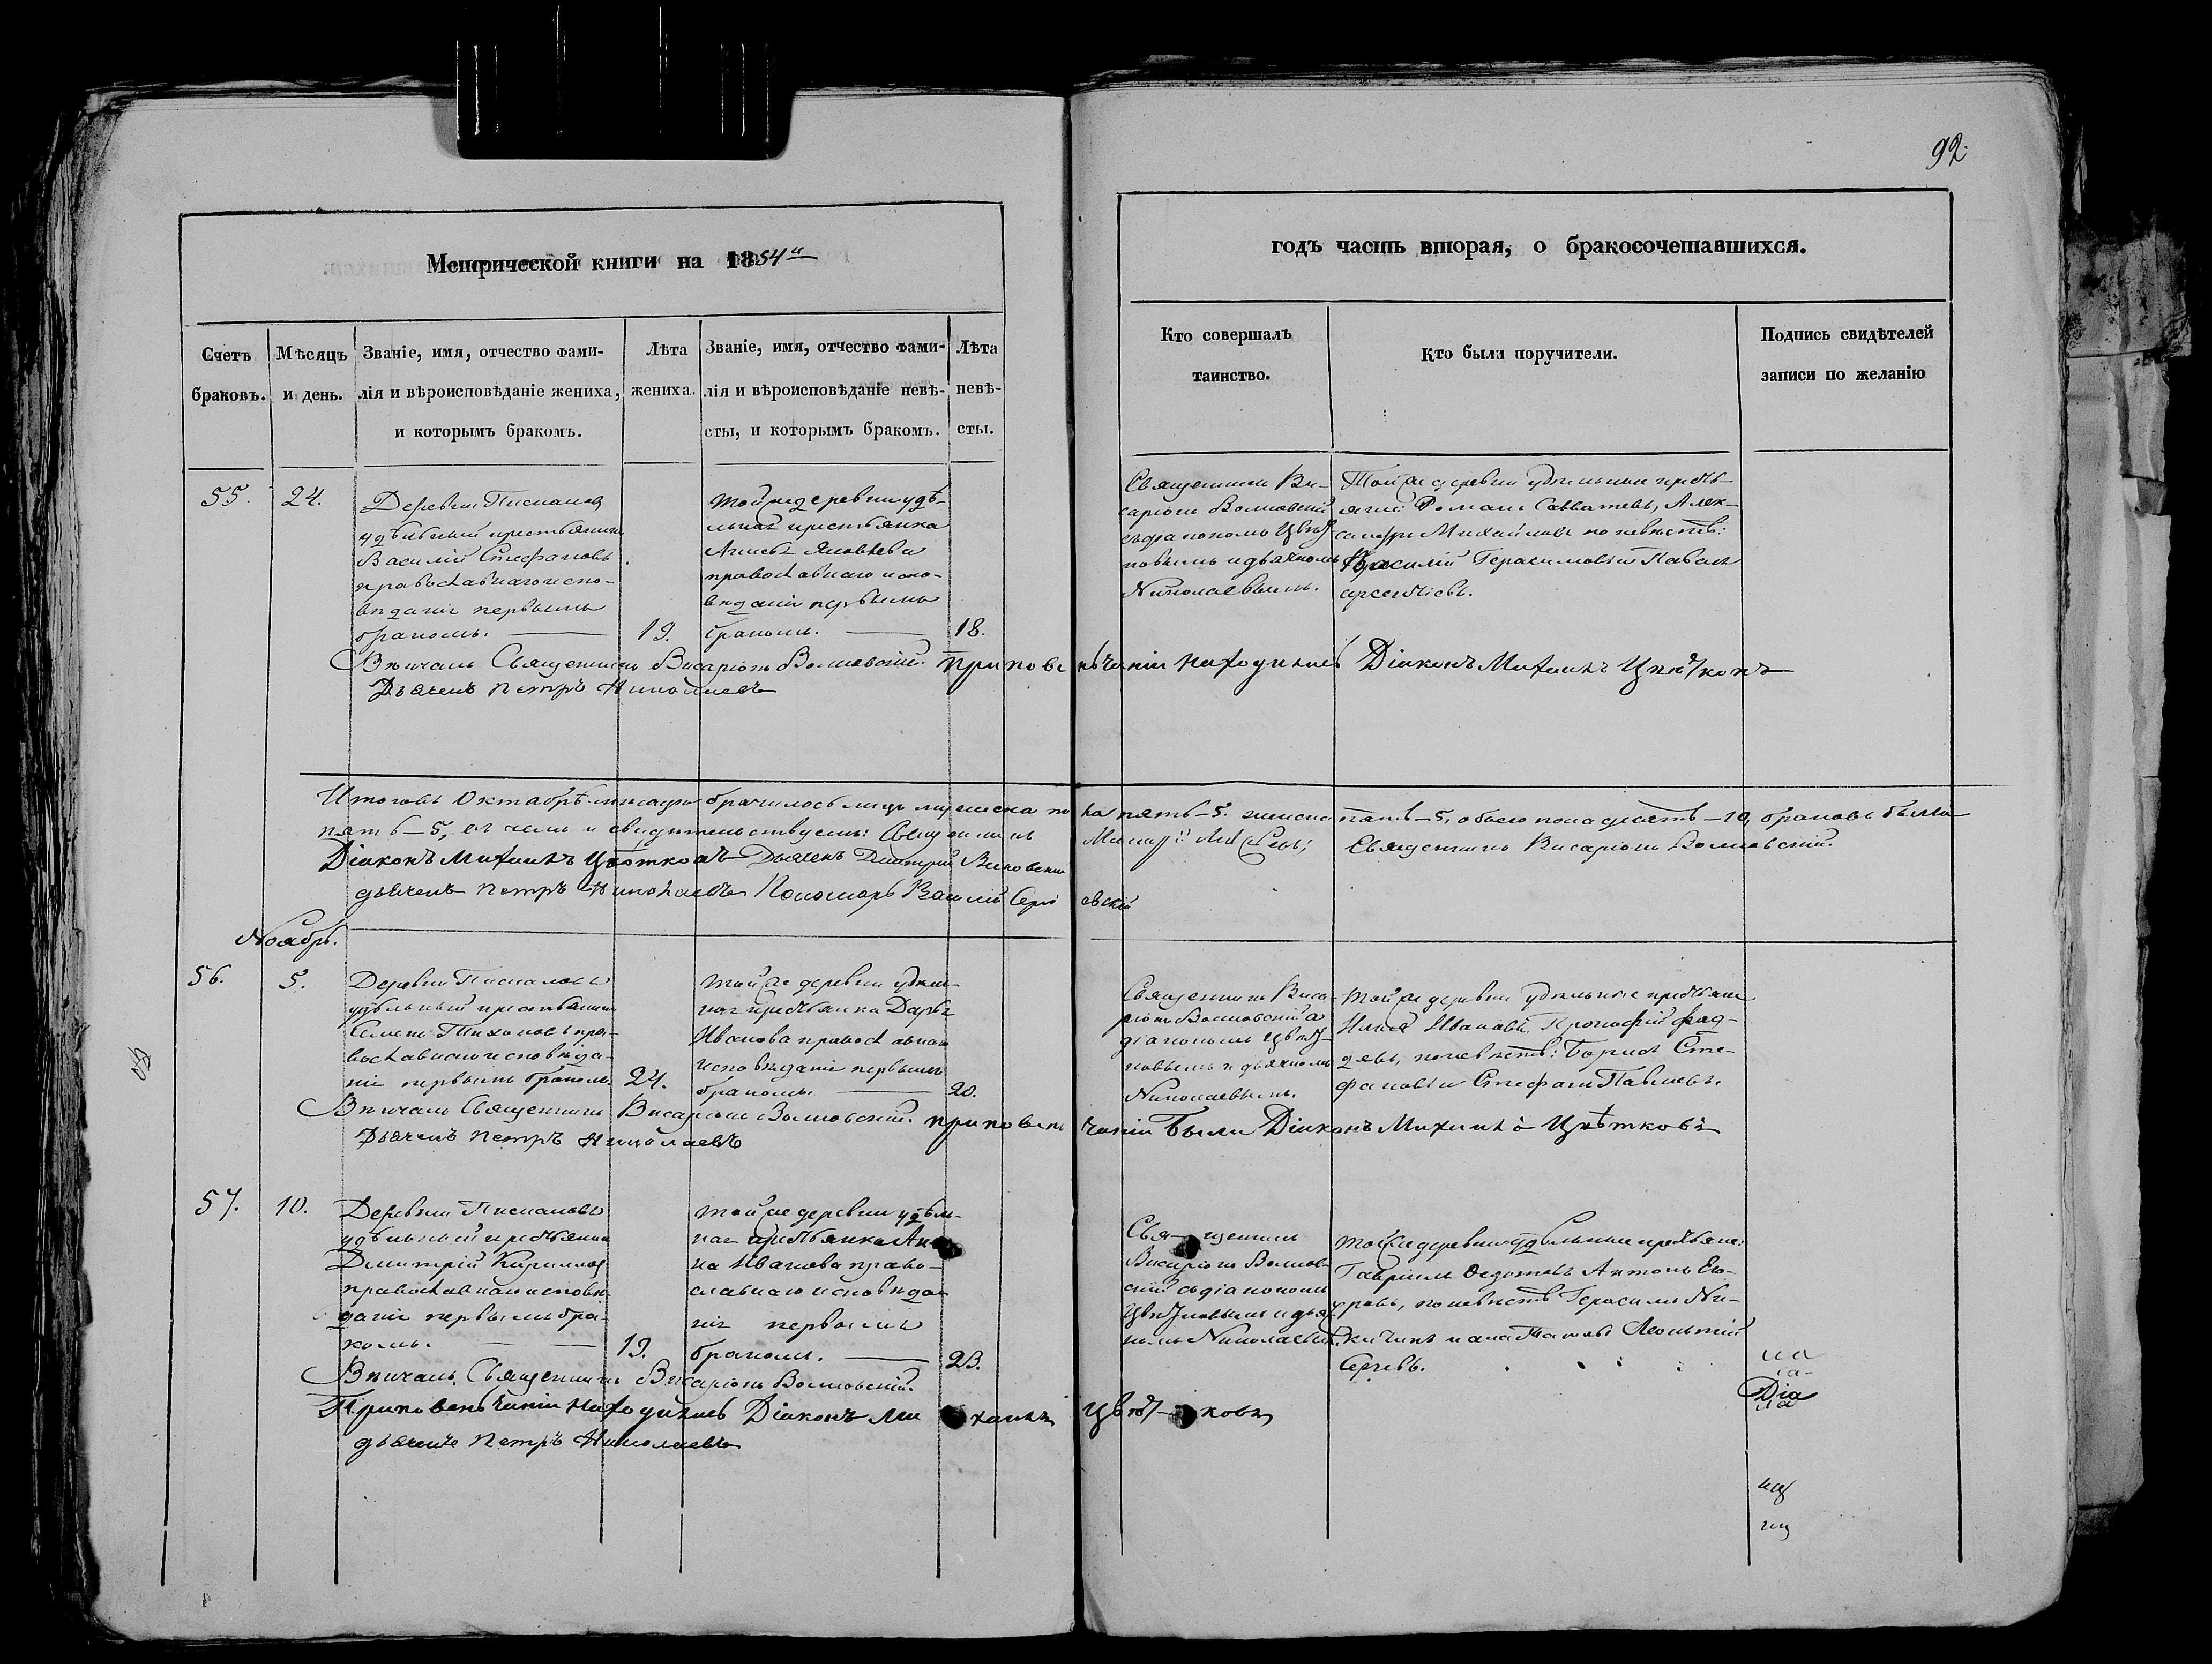 92.
Метрической книги на 1854й
годъ часть вторая, о бракосочетавшихся.
Счетъ браковъ.
Мѣсяцъ и день.
Званіе, имя, отчество фами-
лія и вѣроисповѣданіе жениха,
и которымъ бракомъ.
Лѣта жениха.
Званіе, имя, отчество фами-
лія и вѣроисповѣданіе невѣ-
сты, и которымъ бракомъ.
Лѣта невѣ-
сты.
Кто совершалъ
таинство.
Кто были поручители.
Подпись свидѣтелей
записи по желанію
55.
24.
Деревни
удѣльный крестьянинъ
Василій Стефановъ
православнаго испо-
вѣданія первымъ
бракомъ.
19.
Той же деревни удѣ-
льная крестьянка
Яковлева
православнаго испо-
вѣданія первымъ
бракомъ.
18.
Священникъ Ви-
саріонъ
съ діакономъ Цвѣт-
ковымъ и дьячкомъ
Николаевымъ.
Той же деревни удѣльные кресть-
яне Романъ Савватеевъ, Алек-
сандръ Михайловъ по невѣстѣ:
Василій Герасимовъ и Павелъ
Арсентіевъ.
Вѣнчалъ Священникъ Висаріонъ При повѣнчаніи находились Діаконъ Михаилъ Цвѣтковъ
Дьячекъ Петръ Николаевъ
Итого въ Октябрѣ мѣсяцѣ брачилось лицъ мужеска пола пять - 5. женска пять - 5, обоего пола десять - 10, браковъ было
пять - 5, въ чемъ и свидѣтельствуемъ: Священникъ Священникъ Висаріонъ
Діаконъ Михаилъ Цвѣтковъ Дьячекъ Дмитрій
дьячекъ Петръ Николаевъ Пономарь Василій
Ноябрь.
56.
5.
Деревни
удѣльный крестьянинъ
Семенъ Тихоновъ пра-
вославнаго исповѣда-
нія первымъ бракомъ.
24.
Той же деревни удѣль-
ная крестьянка Дарья
Иванова православнаго
исповѣданія первымъ
бракомъ.
20.
Священникъ Виса-
ріонъ съ
діакономъ Цвѣт-
ковымъ и дьячкомъ
Николаевымъ.
Той же деревни удѣльные крестьяне
Илья Ивановъ, Прокофій Фад-
деевъ, по невѣстѣ: Борисъ Сте-
фановъ и Стефанъ Павловъ.
Вѣнчалъ Священникъ Висаріонъ при повѣнчаніи были Діаконъ Михаилъ Цвѣтковъ
Дьячекъ Петръ Николаевъ
57.
10.
Деревни
удѣльный крестьянинъ
Дмитрій Кириловъ
православнаго исповѣ-
данія первымъ бра-
комъ.
19.
Той же деревни удѣль-
ная крестьянка Ан-
на Иванова право-
славнаго исповѣда-
нія первымъ
бракомъ.
23.
Священникъ
Висаріонъ
съ діакономъ
Цвѣтковымъ и дьяч-
комъ Николаевымъ.
Той же деревни удѣльные крестьяне:
Гавріилъ Федотовъ Антонъ
по невѣстѣ Герасимъ Ни-
китинъ и Леонтій
Сергѣевъ.
Вѣнчалъ Священникъ Висаріонъ
При повѣнчаніи находились Діаконъ Михаилъ Цвѣтковъ
дьячекъ Петръ Николаевъ